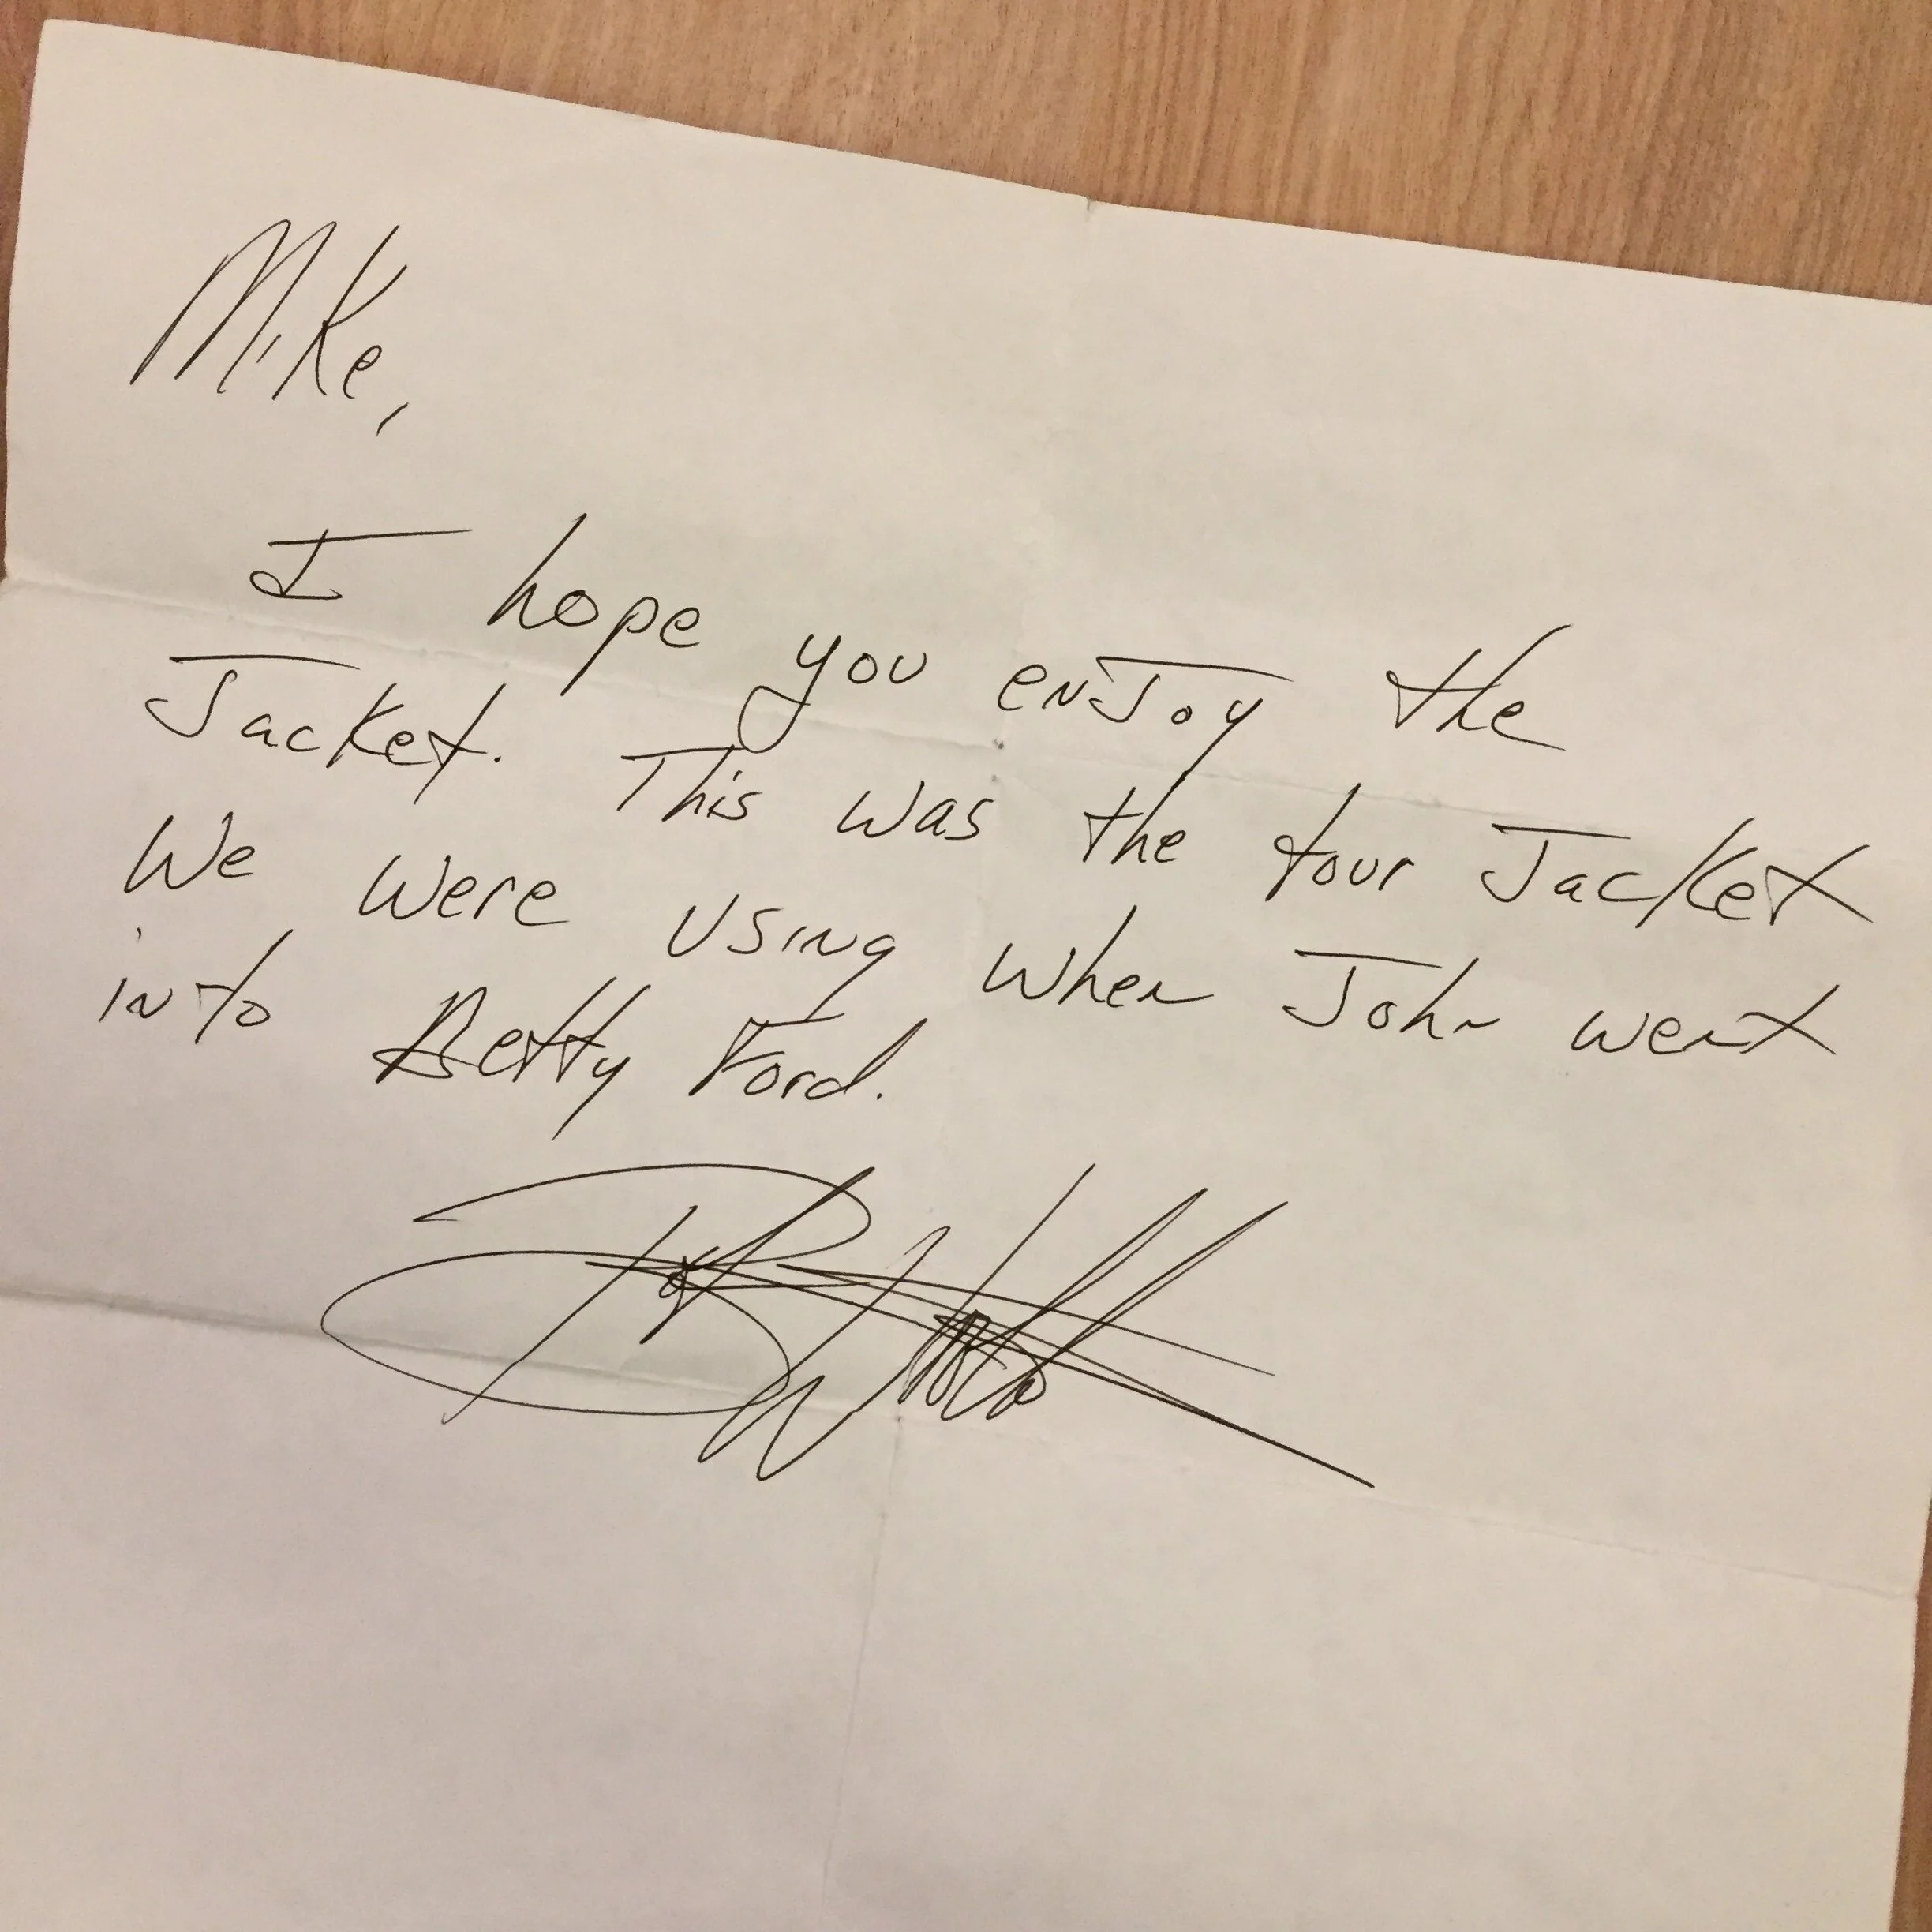 Mike,
I hope you enJoy the
Jacket. This was the tour Jacket
We were using when John went
into Betty Ford.